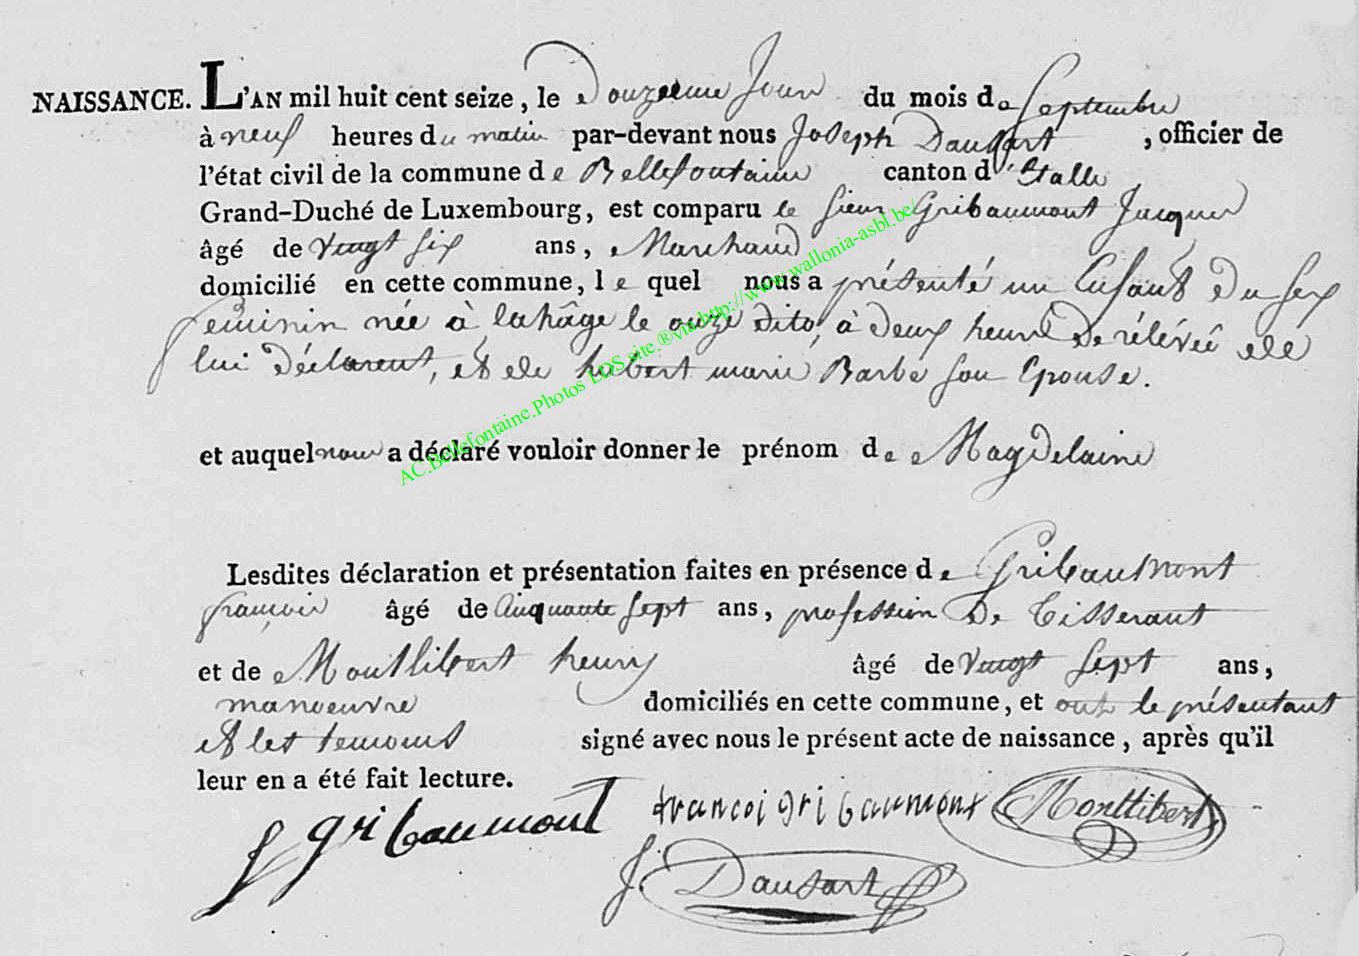 NAISSANCE. L'AN mil huit cent seize, le Douzieme Jour du mois de Septembre
à neuf heures du matin par-devant nous Joseph Dausart, officier de
l'état civil de la commune de Bellefontaine canton d'Etalle
Grand-Duché de Luxembourg, est comparu le sieur Gribaumont Jacques
âgé de Vingt six ans, Marchand
domicilié en cette commune, le quel nous a présenté un Enfant Du sex
feminin née à lahâge le onze dito, à deux heure De rélévée de
lui déclarent, et de hubert marie Barbe son Epouse.
et auquel nous a déclaré vouloir donner le prénom de Magdelaine
Lesdites déclaration et présentation faites en présence de Gribaumont
françois âgé de Cinquante sept ans, profession De tisserant
et de Montlibert henry âgé de Vingt sept ans,
manoeuvre domiciliés en cette commune, et ont le présentant
et les temoins signé avec nous le présent acte de naissance, après qu'il
leur en a été fait lecture.
J gribaumont francoi gribaumont Monttibert
J. Dausart
AC.Bellefontaine.Photos LDS site ® via http://www.wallonia-asbl.be/